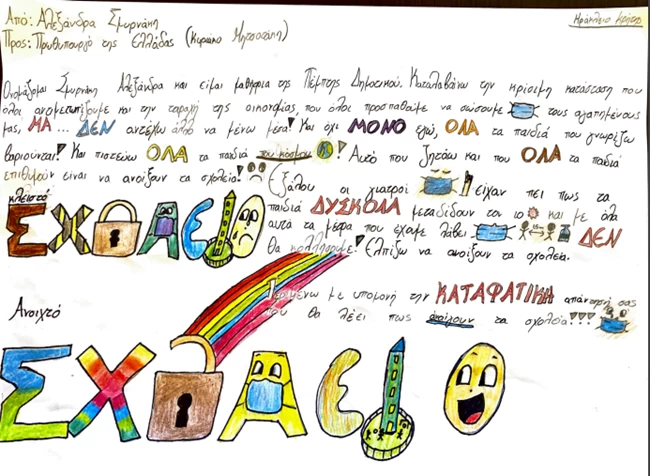 Από: Αλεξάνδρα Σμυρνάκη
Ηράκλειο Κρήτης
Προς: Πρωθυπουργό της Ελλάδας (Κυριάκο Μητσοτάκη)
Ονομάζομαι Σμυρνάκη Αλεξάνδρα και είμαι μαθήτρια της Πέμπτης Δημοτικού. Καταλαβαίνω την κρίσιμη κατάσταση που
όλοι αντιμετωπίζουμε και την ταραχή της οικονομίας, που όλοι προσπαθούμε να σώσουμε τους αγαπημένους
μας, ΜΑ ... ΔΕΝ αντέχω άλλο να μένω μέσα! Και όχι ΜΟΝΟ εγώ, ΟΛΑ τα παιδιά που γνωρίζω
βαριούνται! Και πιστεύω ΟΛΑ τα παιδιά του κόσμου! Αυτό που ζητάω και που ΟΛΑ τα παιδιά
επιθυμούν είναι να ανοίξουν τα σχολεία! Εξάλλου οι γιατροί είχαν πει πως τα
κλειστό
παιδιά ΔΥΣΚΟΛΑ μεταδίδουν τον ιό και με όλα
ΣΧΟΛΕΙΟ
αυτά τα μέτρα που έχουμε λάβει ΔΕΝ
θα κολλήσουμε! Ελπίζω να ανοίξουν τα σχολεία.
Περιμένω με υπομονή την ΚΑΤΑΦΑΤΙΚΗ απάντησή σας
Ανοιχτό
που θα λέει πως ανοίγουν τα σχολεία!!!
ΣΧΟΛΕΙΟ